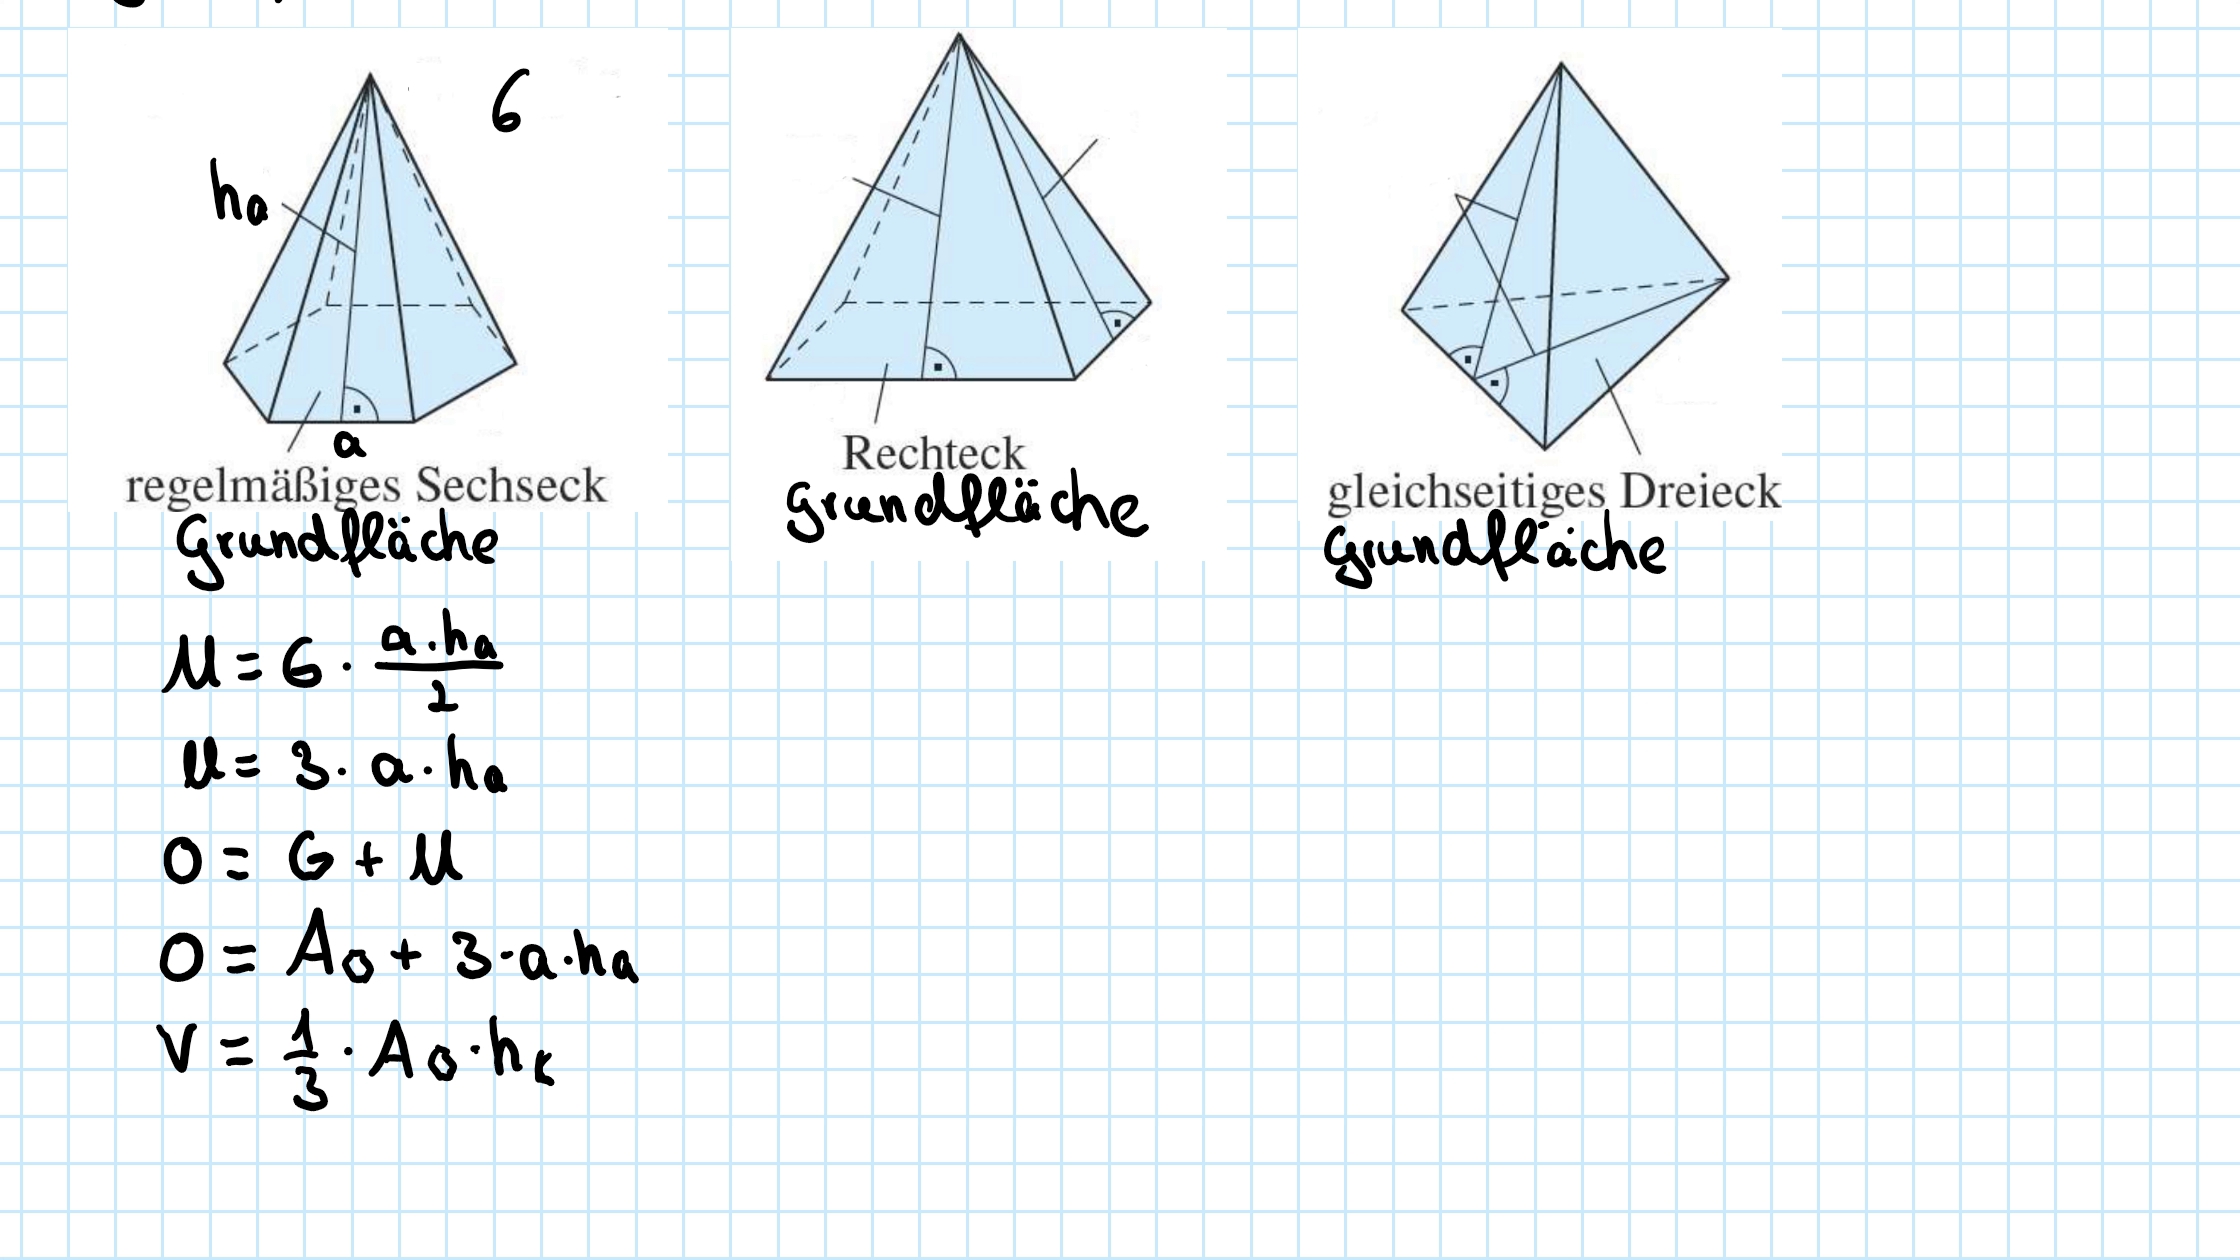 6
ha
a
regelmäßiges Sechseck
Grundfläche
M = 6 · a·ha/2
M = 3 · a · ha
O = G + M
O = A + 3·a·ha
V = 1/3 · A · hk
Rechteck
Grundfläche
gleichseitiges Dreieck
Grundfläche